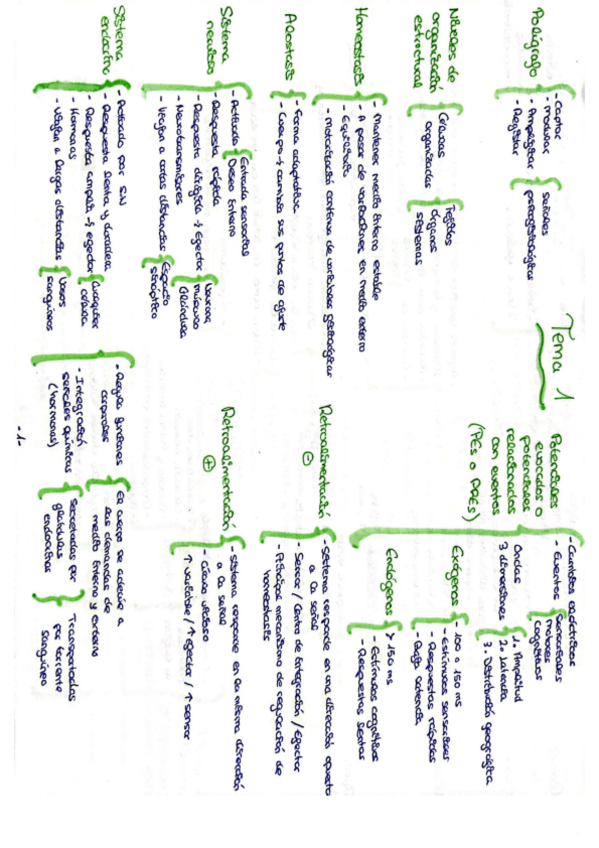 Tema 1
Polígrafo
- Captar
- Modular
- Amplificar
- Registrar
señales
psicofisiológicas
Niveles de
organización
estructural
Células
organizadas
Tejidos
órganos
sistemas
Homeostasis
- Mantener medio interno estable
- A pesar de variaciones en medio externo
- Equilibrio
- Monitorización continua de variables fisiológicas
Alostasis
- Forma adaptativa
- Cuerpo → cambia sus puntos de ajuste
Sistema
nervioso
- Activado
Entrada sensorial
Deseo interno
- Respuesta rápida
- Respuesta dirigida → Efector
Neurona
músculo
Glándula
- Neurotransmisores
- Viajan a cortas distancias
Espacio
sináptico
Sistema
endocrino
- Activado por SN
- Respuesta lenta y duradera
- Respuesta amplia → efector
Cualquier
célula
- Hormonas
- Viajan a largas distancias
Vasos
sanguíneos
Potenciales
evocados o
potenciales
relacionados
con eventos
(PEs o PREs)
- Cambios eléctricos
- Eventos
Sensoriales
motores
cognitivos
Ondas
3 dimensiones
1. Amplitud
2. Latencia
3. Distribución geográfica
Exógenos
- 100 a 150 ms
- Estímulos sensoriales
- Respuestas rápidas
- Baja latencia
Endógenos
> 150 ms
- Estímulos cognitivos
- Respuestas lentas
Retroalimentación
⊖
- Sistema responde en una dirección opuesta
a la señal
- Sensor / Centro de integración / Efector
- Principal mecanismo de regulación de
homeostasis
Retroalimentación
⊕
- Sistema responde en la misma dirección
a la señal
- Círculo vicioso
↑ variable / ↑ efector / ↑ sensor
- Regula funciones
corporales
El cuerpo se adecúe a
las demandas de
medio interno y externo
- Integración
señales químicas
(hormonas)
secretadas por
glándulas
endocrinas
Transportadas
por torrente
sanguíneo
-1-